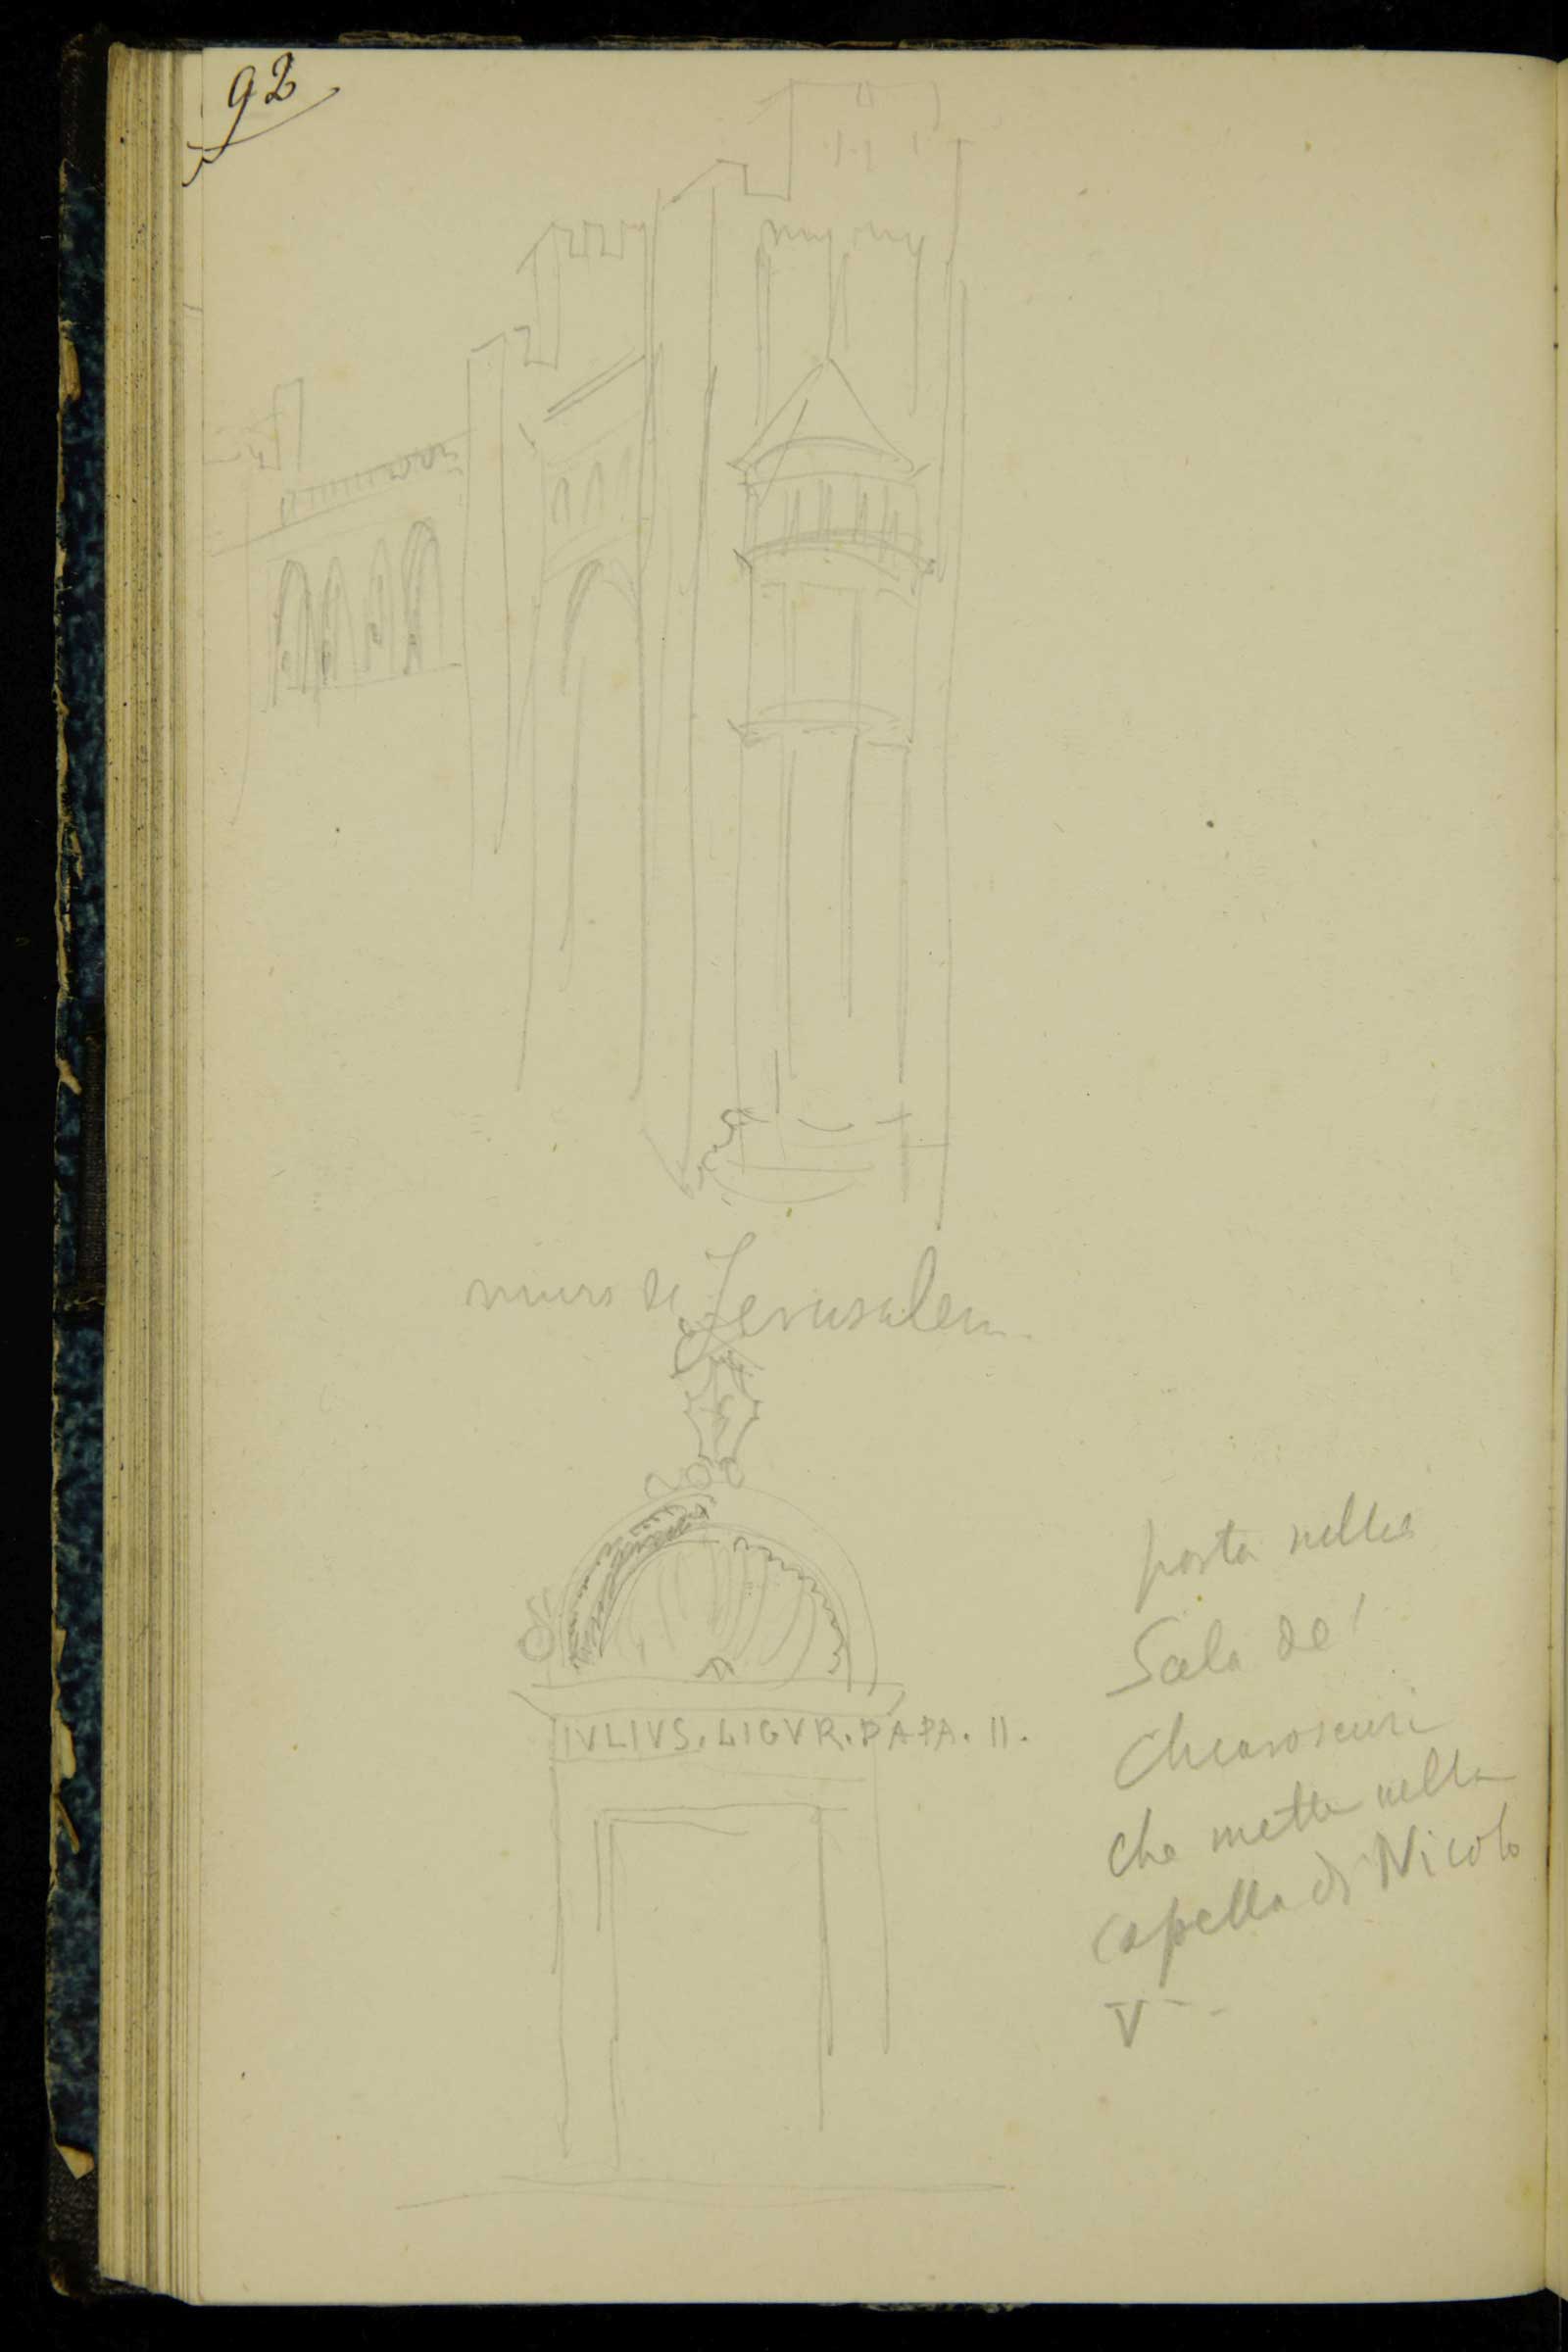 92
muro di Jerusalem
IVLIVS. LIGVR. PAPA. II.
porta nella
Sala de'
Chiaroscuri
che mette nella
capella di Nicolò
V